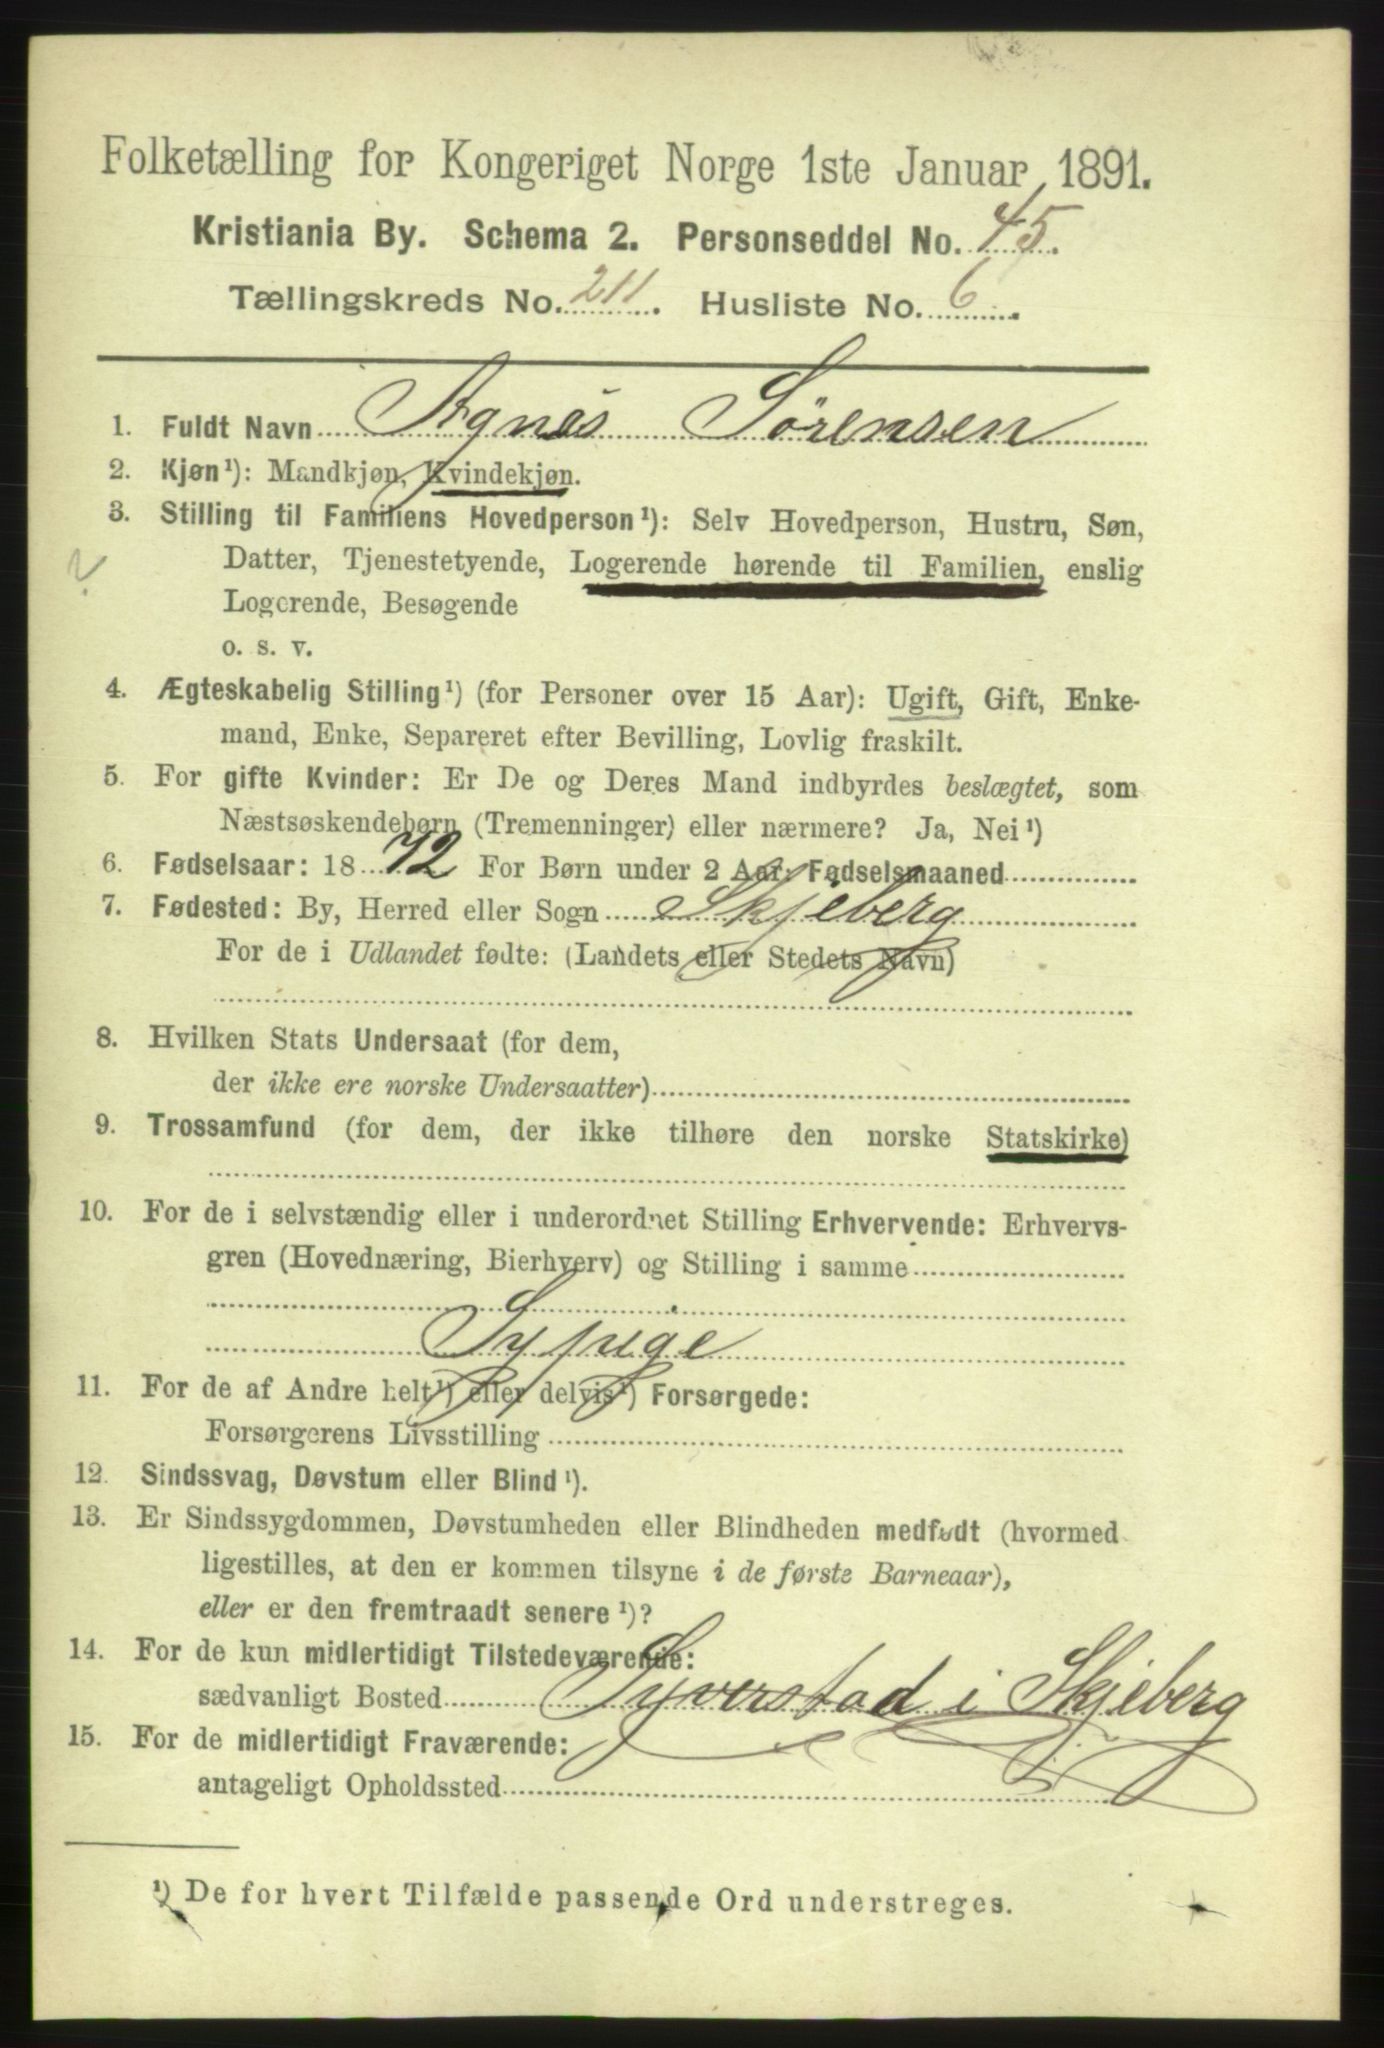 Folketælling for Kongeriget Norge 1ste Januar 1891.
Kristiania By. Schema 2. Personseddel No. 45.
Tællingskreds No. 211. Husliste No. 6.
1. Fuldt Navn Agnes Sörensen
2. Kjøn¹): Mandkjøn, Kvindekjøn.
3. Stilling til Familiens Hovedperson¹): Selv Hovedperson, Hustru, Søn,
Datter, Tjenestetyende, Logerende hørende til Familien, enslig
Logerende, Besøgende
o. s. v.
4. Ægteskabelig Stilling¹) (for Personer over 15 Aar): Ugift, Gift, Enke-
mand, Enke, Separeret efter Bevilling, Lovlig fraskilt.
5. For gifte Kvinder: Er De og Deres Mand indbyrdes beslægtet, som
Næstsøskendebørn (Tremenninger) eller nærmere? Ja, Nei¹)
6. Fødselsaar: 1872 For Børn under 2 Aar: Fødselsmaaned
7. Fødested: By, Herred eller Sogn Skjeberg
For de i Udlandet fødte: (Landets eller Stedets Navn)
8. Hvilken Stats Undersaat (for dem,
der ikke ere norske Undersaatter)
9. Trossamfund (for dem, der ikke tilhøre den norske Statskirke)
10. For de i selvstændig eller i underordnet Stilling Erhvervende: Erhvervs-
gren (Hovednæring, Bierhverv) og Stilling i samme
Sypige
11. For de af Andre helt¹) eller delvis¹) Forsørgede:
Forsørgerens Livsstilling
12. Sindssvag, Døvstum eller Blind¹).
13. Er Sindssygdommen, Døvstumheden eller Blindheden medfødt (hvormed
ligestilles, at den er kommen tilsyne i de første Barneaar),
eller er den fremtraadt senere¹)?
14. For de kun midlertidigt Tilstedeværende:
sædvanligt Bosted Syverstad i Skjeberg
15. For de midlertidigt Fraværende:
antageligt Opholdssted
¹) De for hvert Tilfælde passende Ord understreges.